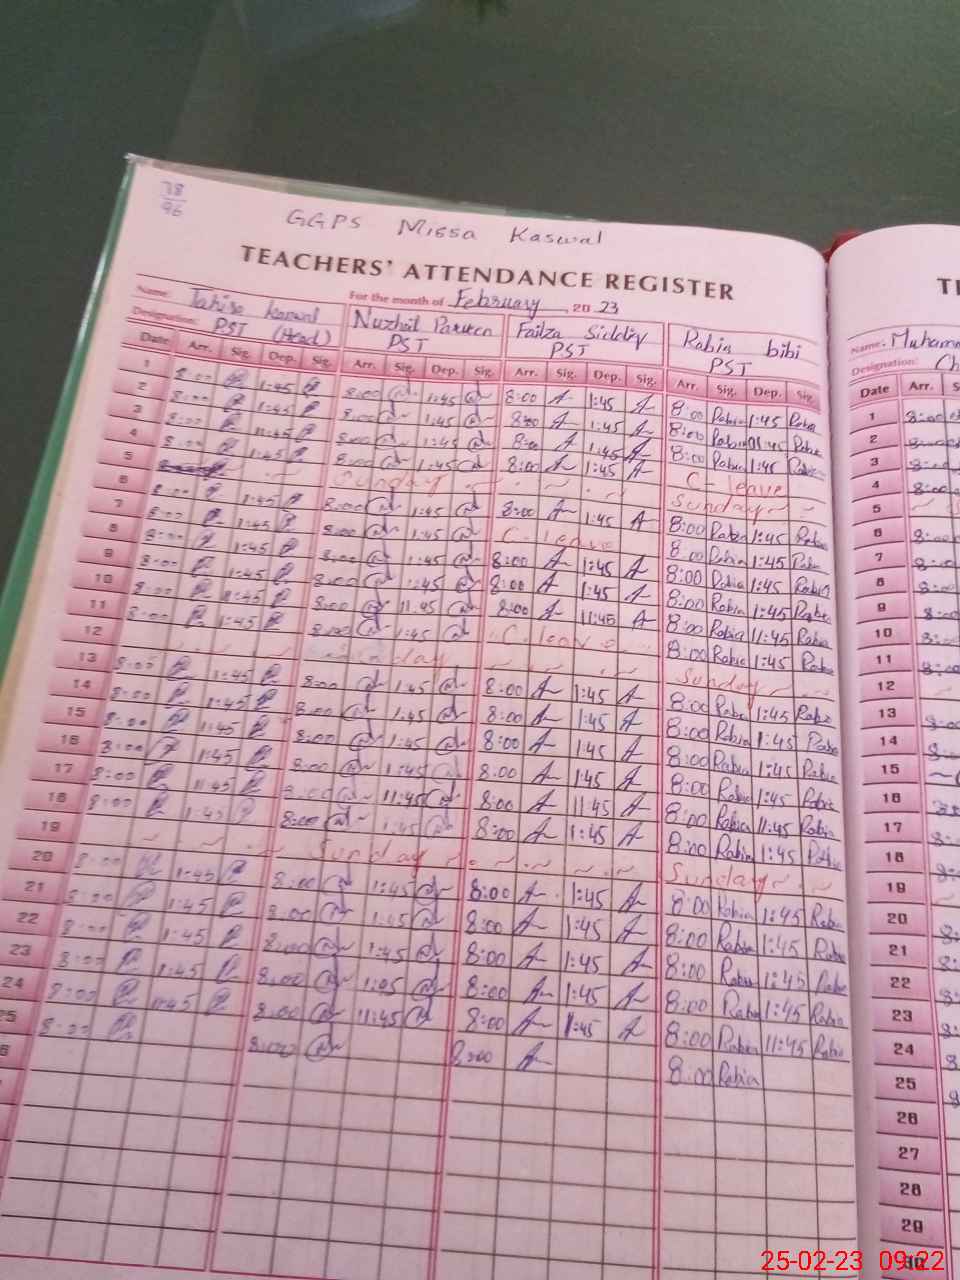 78
96
GGPS Missa Kaswal
TEACHERS' ATTENDANCE REGISTER
For the month of February 20 23
Name: Tahira Kanwal
Designation: PST (Head)
Nuzhat Parveen
PST
Faiza Siddiqy
PST
Rabia bibi
PST
Date Arr. Sig. Dep. Sig. Arr. Sig. Dep. Sig. Arr. Sig. Dep. Sig. Arr. Sig. Dep. Sig.
1 8:00 1:45 8:00 1:45 8:00 1:45 8:00 Rabia 1:45 Rabia
2 8:00 1:45 8:00 1:45 8:00 1:45 8:00 Rabia 1:45 Rabia
3 8:00 11:45 8:00 1:45 8:00 1:45 8:00 Rabia 1:45 Rabia
4 8:00 1:45 8:00 1:45 8:00 1:45 C- leave
5 Sunday Sunday
6 8:00 1:45 8:00 1:45 8:00 1:45 8:00 Rabia 1:45 Rabia
7 8:00 1:45 8:00 1:45 C. leave 8:00 Rabia 1:45 Rabia
8 8:00 1:45 8:00 1:45 8:00 1:45 8:00 Rabia 1:45 Rabia
9 8:00 1:45 8:00 1:45 8:00 1:45 8:00 Rabia 1:45 Rabia
10 8:00 11:45 8:00 11:45 8:00 11:45 8:00 Rabia 11:45 Rabia
11 8:00 1:45 8:00 1:45 C. leave 8:00 Rabia 1:45 Rabia
12 Sunday Sunday
13 8:00 1:45 8:00 1:45 8:00 1:45 8:00 Rabia 1:45 Rabia
14 8:00 1:45 8:00 1:45 8:00 1:45 8:00 Rabia 1:45 Rabia
15 8:00 1:45 8:00 1:45 8:00 1:45 8:00 Rabia 1:45 Rabia
16 8:00 1:45 8:00 1:45 8:00 1:45 8:00 Rabia 1:45 Rabia
17 8:00 11:45 8:00 11:45 8:00 11:45 8:00 Rabia 11:45 Rabia
18 8:00 1:45 8:00 1:45 8:00 1:45 8:00 Rabia 1:45 Rabia
19 Sunday Sunday
20 8:00 1:45 8:00 1:45 8:00 1:45 8:00 Rabia 1:45 Rabia
21 8:00 1:45 8:00 1:45 8:00 1:45 8:00 Rabia 1:45 Rabia
22 8:00 1:45 8:00 1:45 8:00 1:45 8:00 Rabia 1:45 Rabia
23 8:00 1:45 8:00 1:45 8:00 1:45 8:00 Rabia 1:45 Rabia
24 8:00 11:45 8:00 11:45 8:00 11:45 8:00 Rabia 11:45 Rabia
25 8:00 8:00 8:00 8:00 Rabia
Name:
Designation:
Date Arr.
1 8:00
2 8:00
3 8:00
4 8:00
5
6 8:00
7 8:00
8 8:00
9 8:00
10 8:00
11 8:00
12
13
14
15
16
17
18
19
20
21
22
23
24
25
26
27
28
29
30
25-02-23 09:22